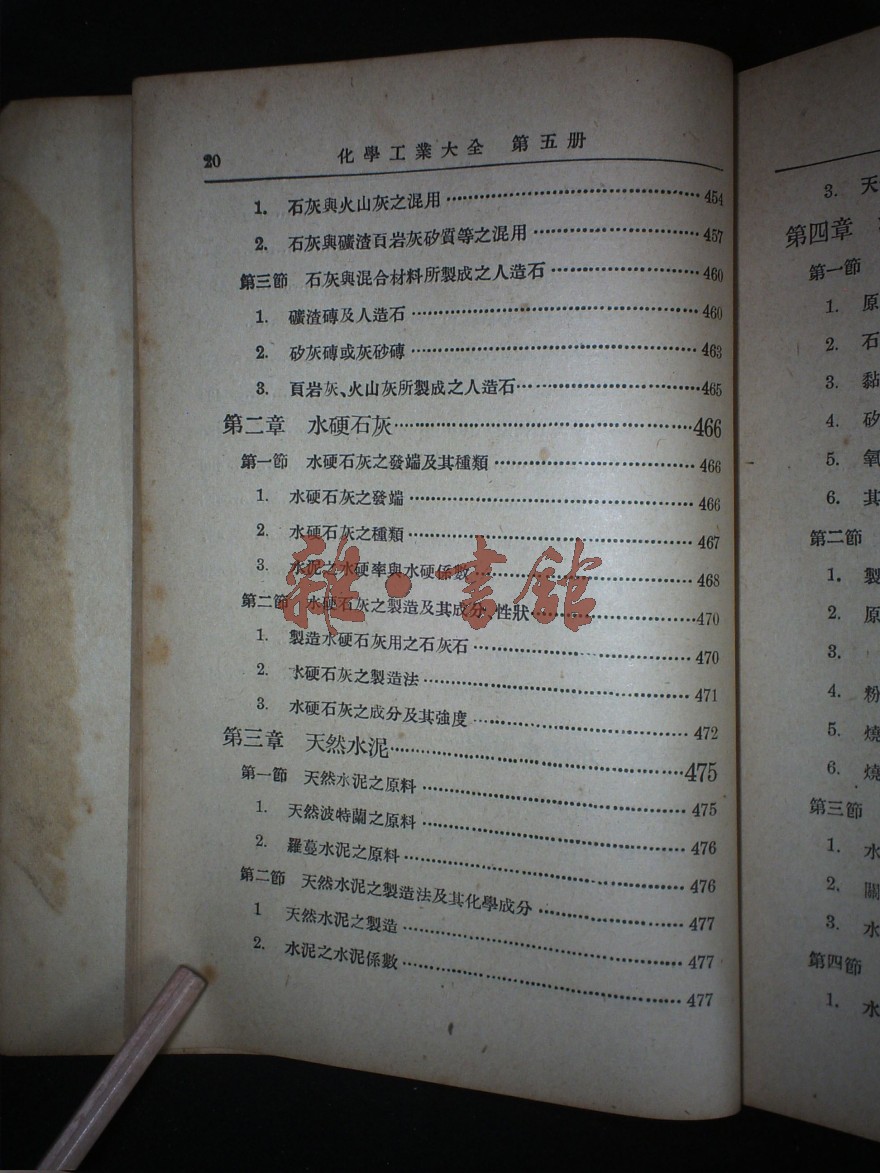 20 化學工業大全 第五册
1. 石灰與火山灰之混用 454
2. 石灰與礦渣頁岩灰矽質等之混用 457
第三節 石灰與混合材料所製成之人造石 460
1. 礦渣磚及人造石 460
2. 矽灰磚或灰砂磚 463
3. 頁岩灰、火山灰所製成之人造石 465
第二章 水硬石灰 466
第一節 水硬石灰之發端及其種類 466
1. 水硬石灰之發端 466
2. 水硬石灰之種類 467
3. 水泥之水硬率與水硬係數 468
第二節 水硬石灰之製造及其成分、性狀 470
1. 製造水硬石灰用之石灰石 470
2. 水硬石灰之製造法 471
3. 水硬石灰之成分及其強度 472
第三章 天然水泥 475
第一節 天然水泥之原料 475
1. 天然波特蘭之原料 476
2. 羅蔓水泥之原料 476
第二節 天然水泥之製造法及其化學成分 477
1 天然水泥之製造 477
2. 水泥之水泥係數 477
雜·書館
3. 天
第四章
第一節
1. 原
2. 石
3. 黏
4. 矽
5. 氧
6. 其
第二節
1. 製
2. 原
3.
4. 粉
5. 燒
6. 燒
第三節
1. 水
2. 關
3. 水
第四節
1. 水